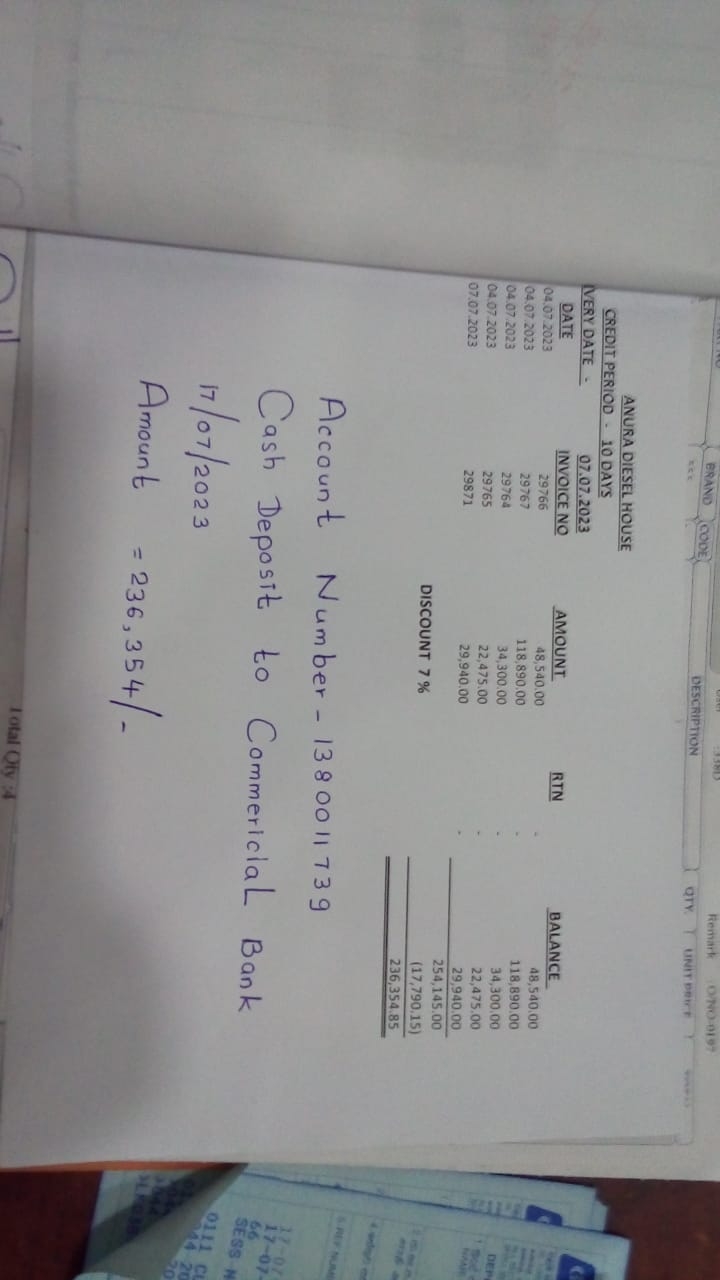 BRAND CODE DESCRIPTION QTY. UNIT PRICE
Remark
ANURA DIESEL HOUSE
CREDIT PERIOD - 10 DAYS
IVERY DATE - 07.07.2023
DATE INVOICE NO AMOUNT RTN BALANCE
04.07.2023 29766 48,540.00 - 48,540.00
04.07.2023 29767 118,890.00 - 118,890.00
04.07.2023 29764 34,300.00 - 34,300.00
04.07.2023 29765 22,475.00 - 22,475.00
07.07.2023 29871 29,940.00 - 29,940.00
254,145.00
DISCOUNT 7 % (17,790.15)
236,354.85
Account Number - 1380011739
Cash Deposit to Commericial Bank
17/07/2023
Amount = 236,354/-
Total Qty :4
17-07-
66
SESS
0111